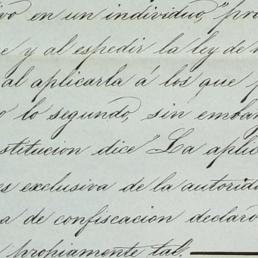 ivo en un individuo," pro
e y al espedir la ley de
al aplicarla á los que
o lo segundo, sin emba
stitucion dice "La aplic
es exclusiva de la autorida
a de confiscacion declaro
propiamente tal.